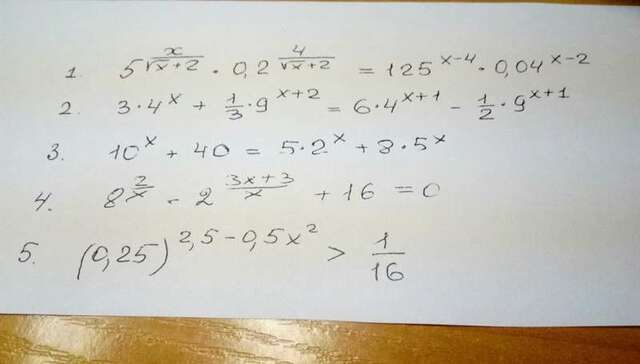 1. 5^{\frac{x}{\sqrt{x}+2}} · 0,2^{\frac{4}{\sqrt{x}+2}} = 125^{x-4} · 0,04^{x-2}
2. 3·4^x + \frac{1}{3}·9^{x+2} = 6·4^{x+1} - \frac{1}{2}·9^{x+1}
3. 10^x + 40 = 5·2^x + 8·5^x
4. 8^{\frac{2}{x}} - 2^{\frac{3x+3}{x}} + 16 = 0
5. (0,25)^{2,5-0,5x^2} > \frac{1}{16}